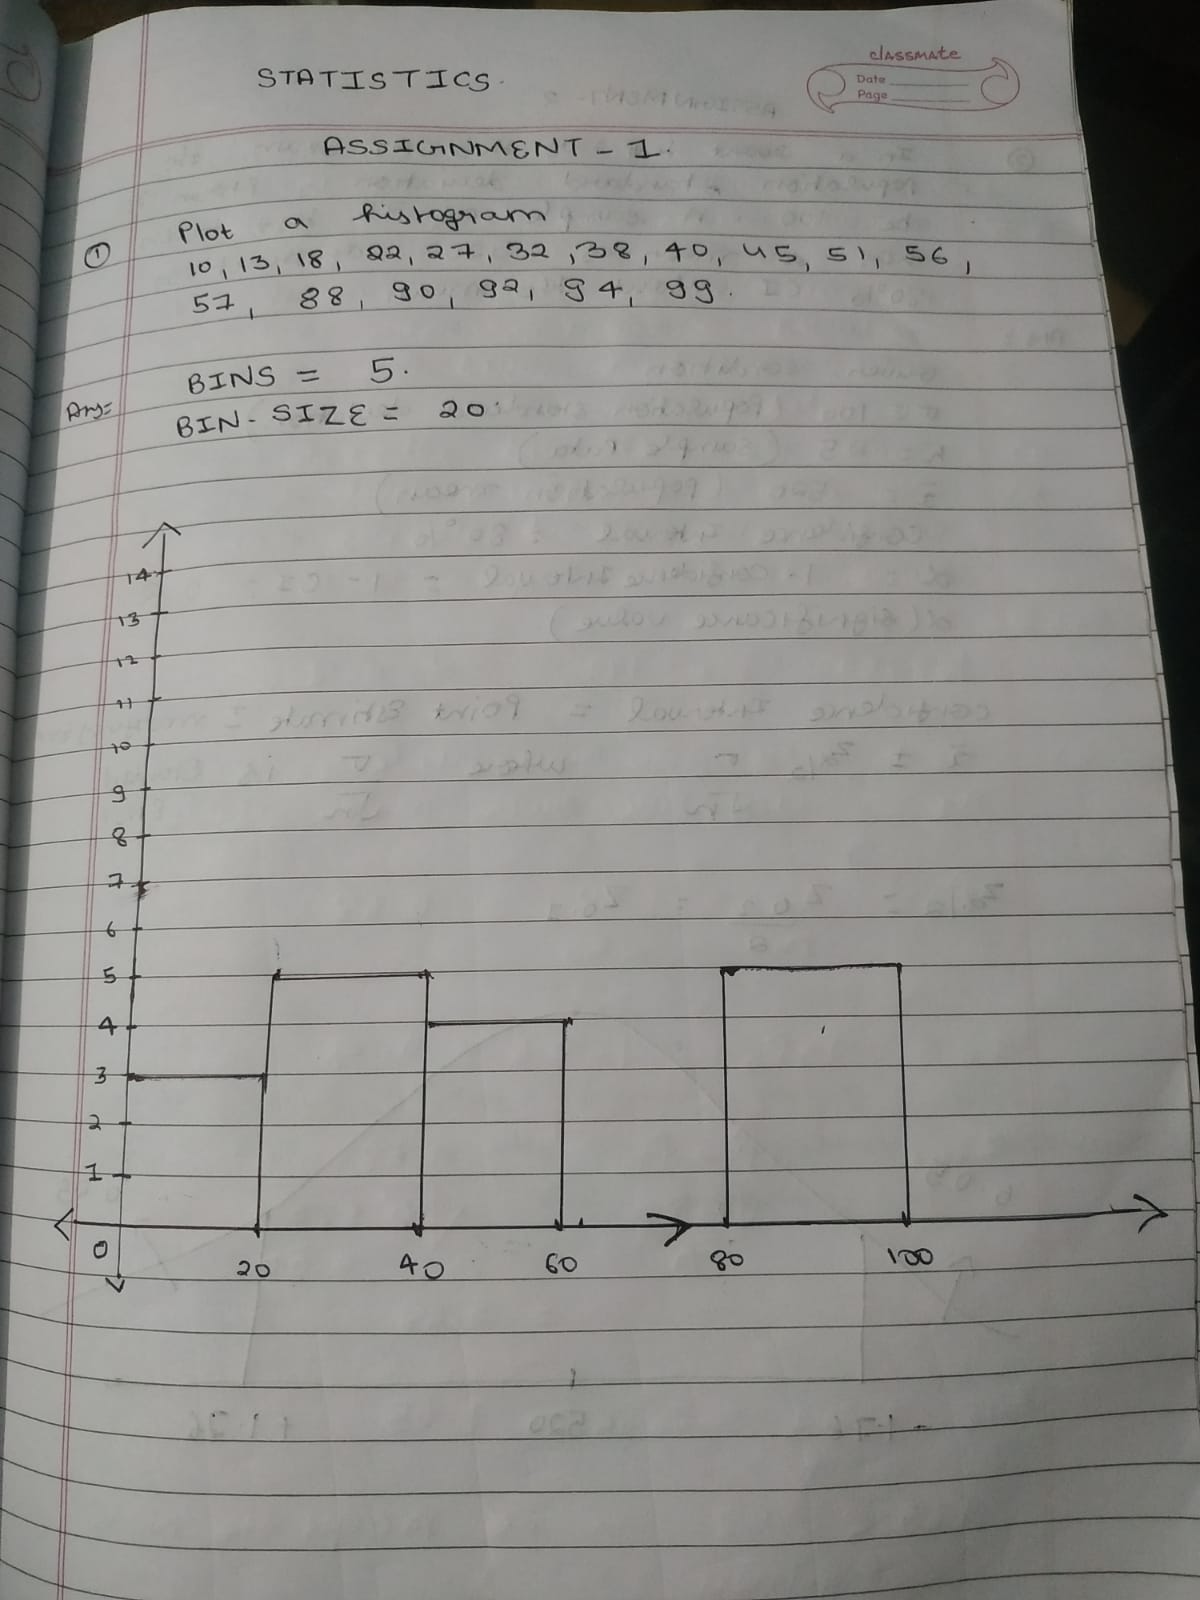 classmate
Date
Page
STATISTICS.
ASSIGNMENT - 1.
① Plot a histogram
10, 13, 18, 22, 27, 32, 38, 40, 45, 51, 56,
57, 88, 90, 92, 94, 99.
BINS = 5.
Ans= BIN-SIZE = 20.
14
13
12
11
10
9
8
7
6
5
4
3
2
1
0 20 40 60 80 100